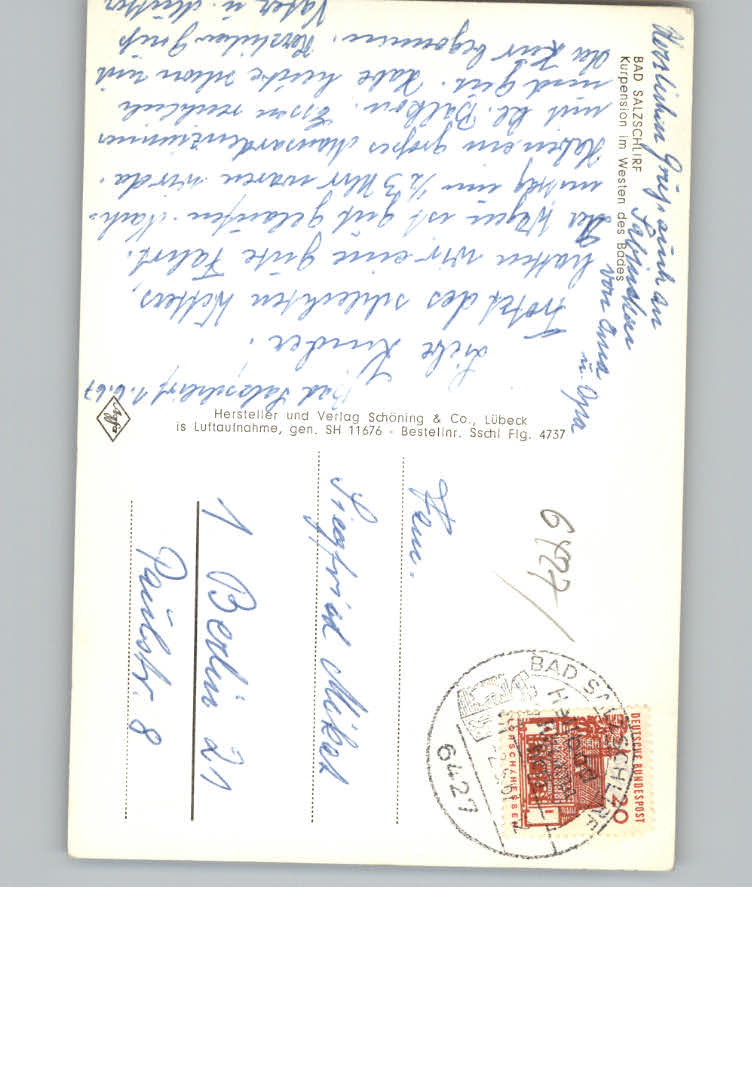 BAD SALZSCHLIRF
Kurpension im Westen des Bades
Bad Salzschlirf 1.6.67
Liebe Kinder!
Trotz des schlechten Wetters,
hatten wir eine gute Fahrt.
Der Wagen ist gut gelaufen. Nach-
mittag um ½ 3 Uhr waren wir da.
Haben ein großes Mansardenzimmer
mit kl. Balkon. Essen reichlich
und gut. Habe heute schon mit
der Kur begonnen. Herzlichen Gruß
Vater u. Mutter
Herzlichen Gruß auch an
von Oma
u. Opa
Hersteller und Verlag Schöning & Co., Lübeck
is Luftaufnahme, gen. SH 11676 - Bestellnr. Sschl Flg. 4737
Agfa
Fam.
Siegfried Mikat
1 Berlin 21
Paulstr. 8
6427
DEUTSCHE BUNDESPOST
20
LORSCH/HESSEN
BAD SALZSCHLIRF
Heilbad
6427